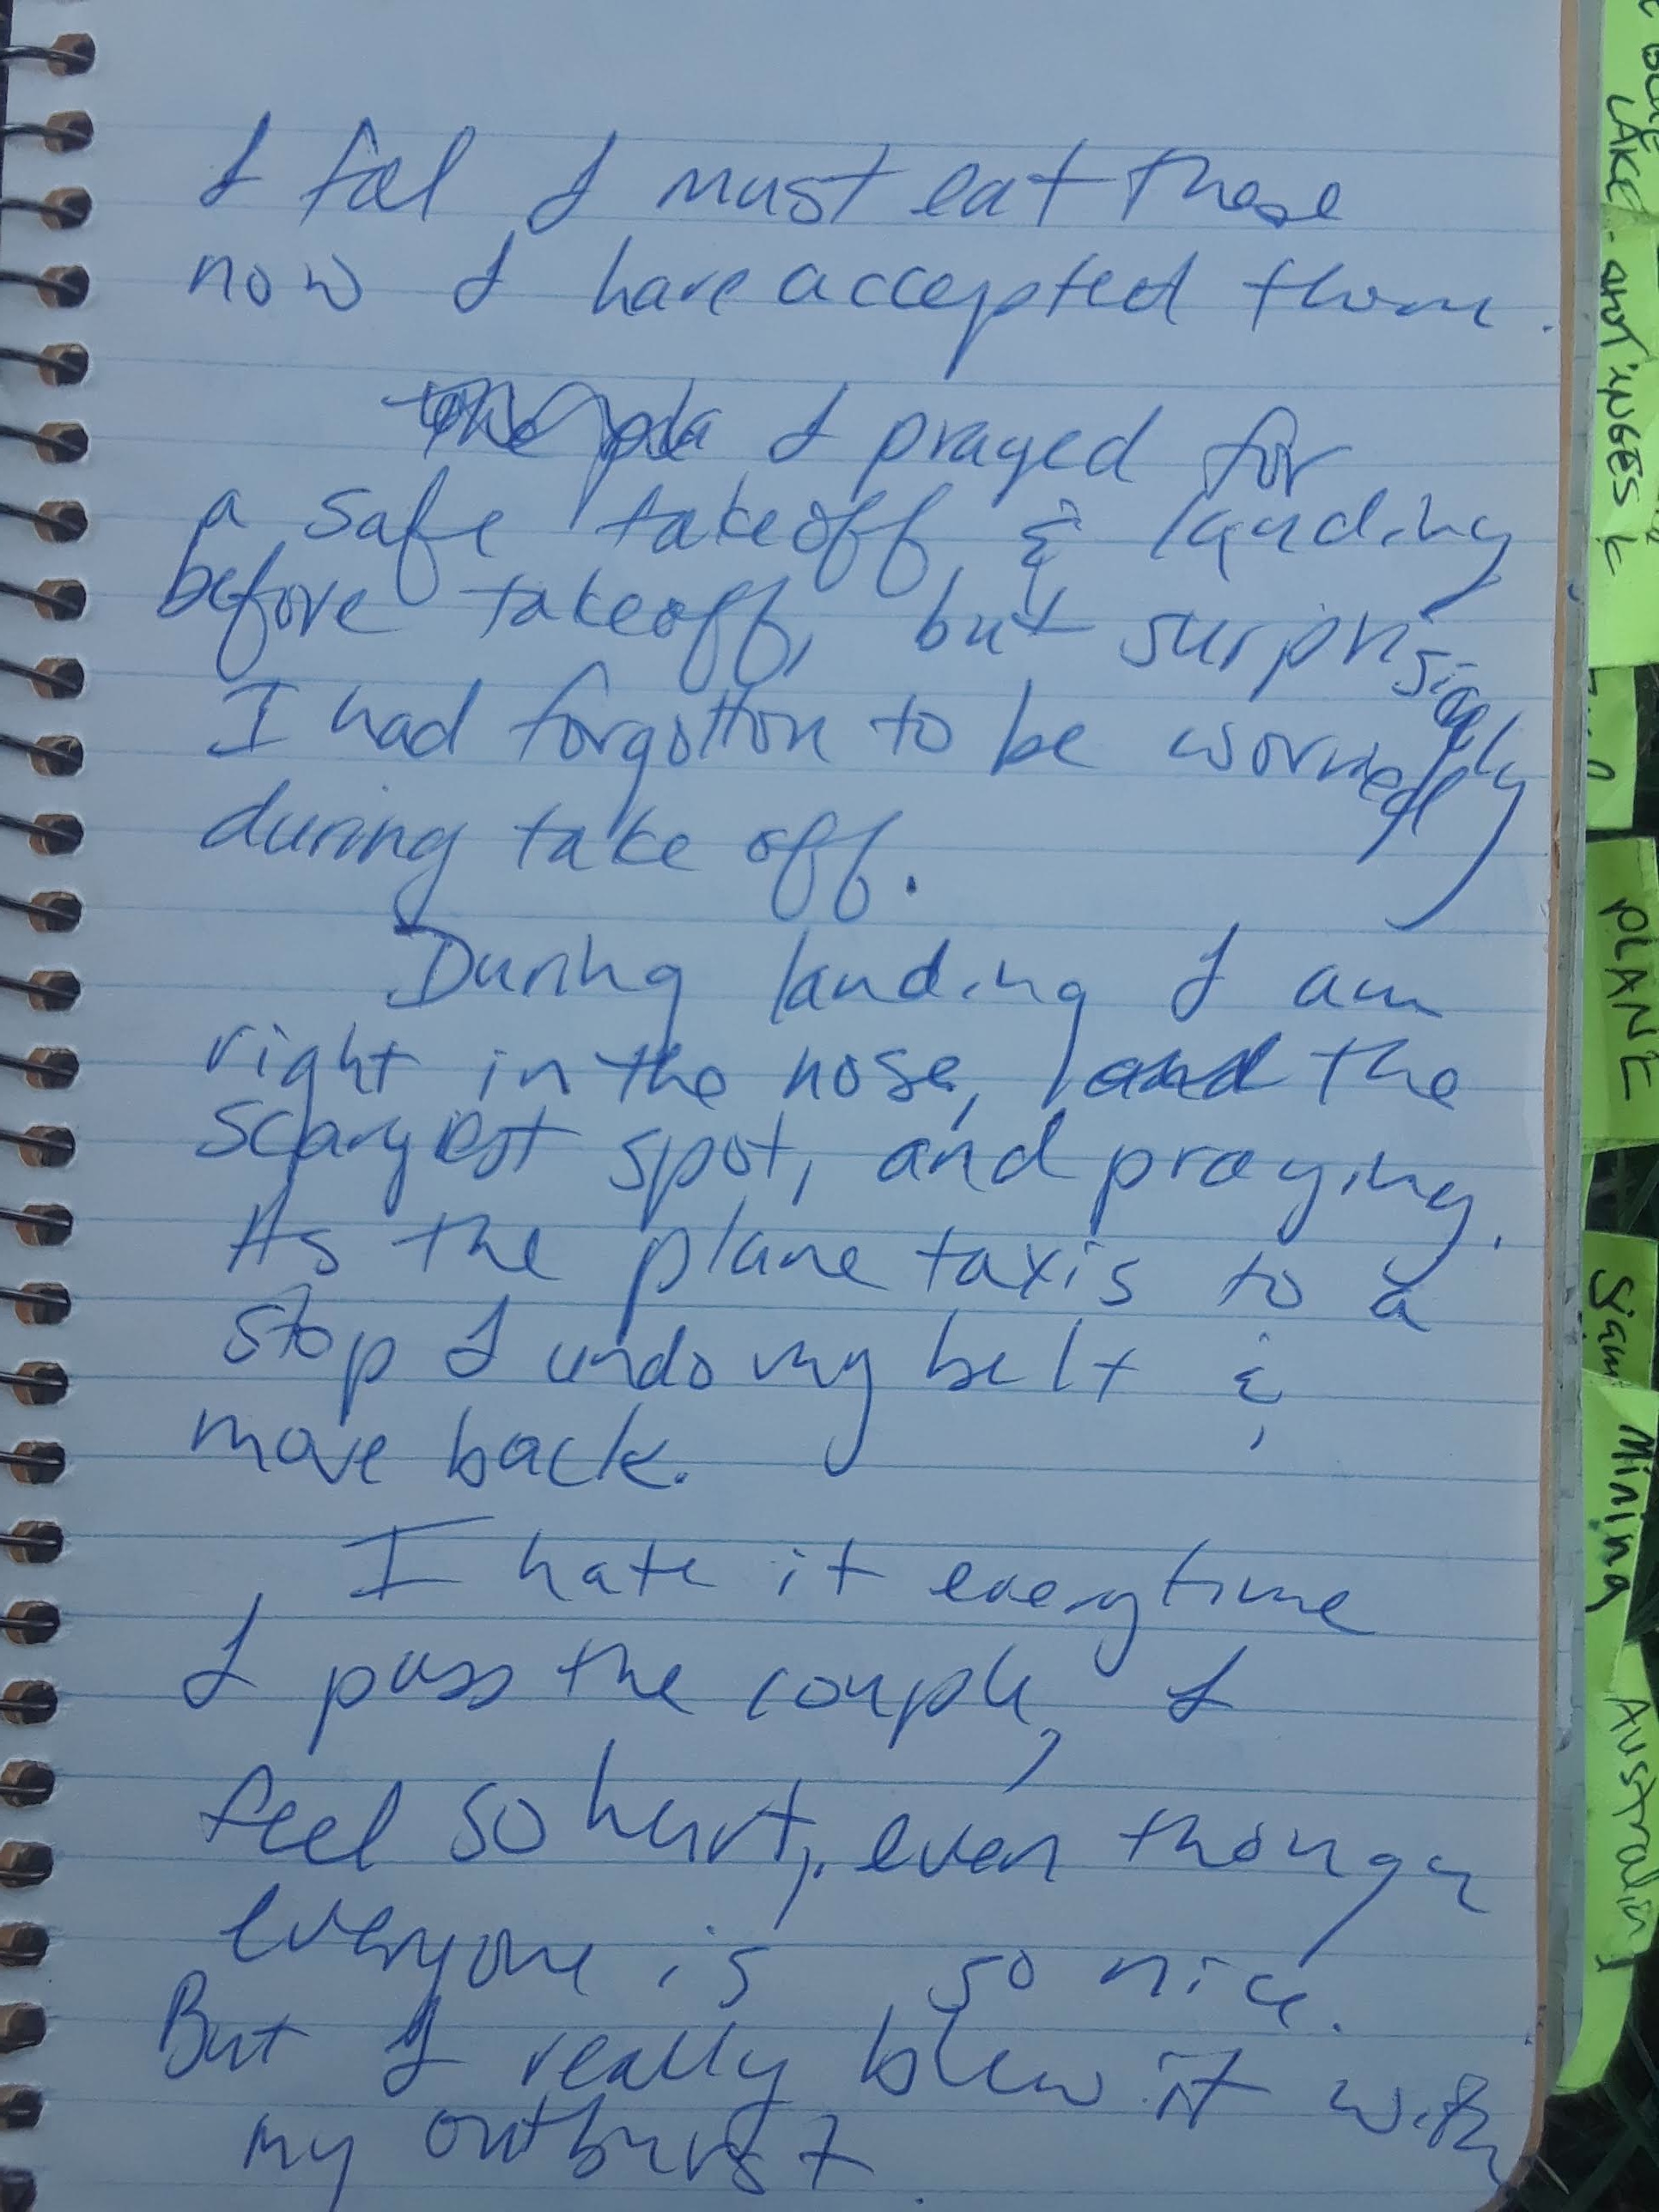 I feel I must eat these
now I have accepted them.
I prayed for
a safe takeoff & landing
before takeoff, but surprisingly
I had forgotton to be worried
during take off.
During landing I am
right in the nose, and the
scaryest spot, and praying.
As the plane taxis to a
stop I undo my belt &
move back.
I hate it everytime
I pass the couple, I
feel so hurt, even though
everyone is so nice.
But I really blew it with
my outburst.
LAKE
PLANE
Siam
Mining
Australia